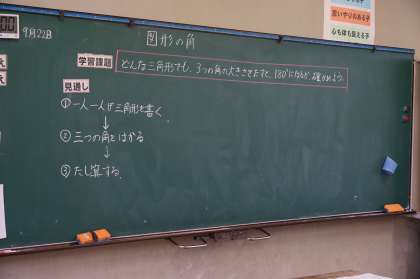 思いやりのある子
心も体も鍛える子
00
9月22日
図形の角
学習課題
どんな三角形でも、3つの角の大きさをたすと、180°になるか、確かめよう。
見通し
①一人一人が三角形を書く
↓
②三つの角をはかる
↓
③たし算する。
え
え